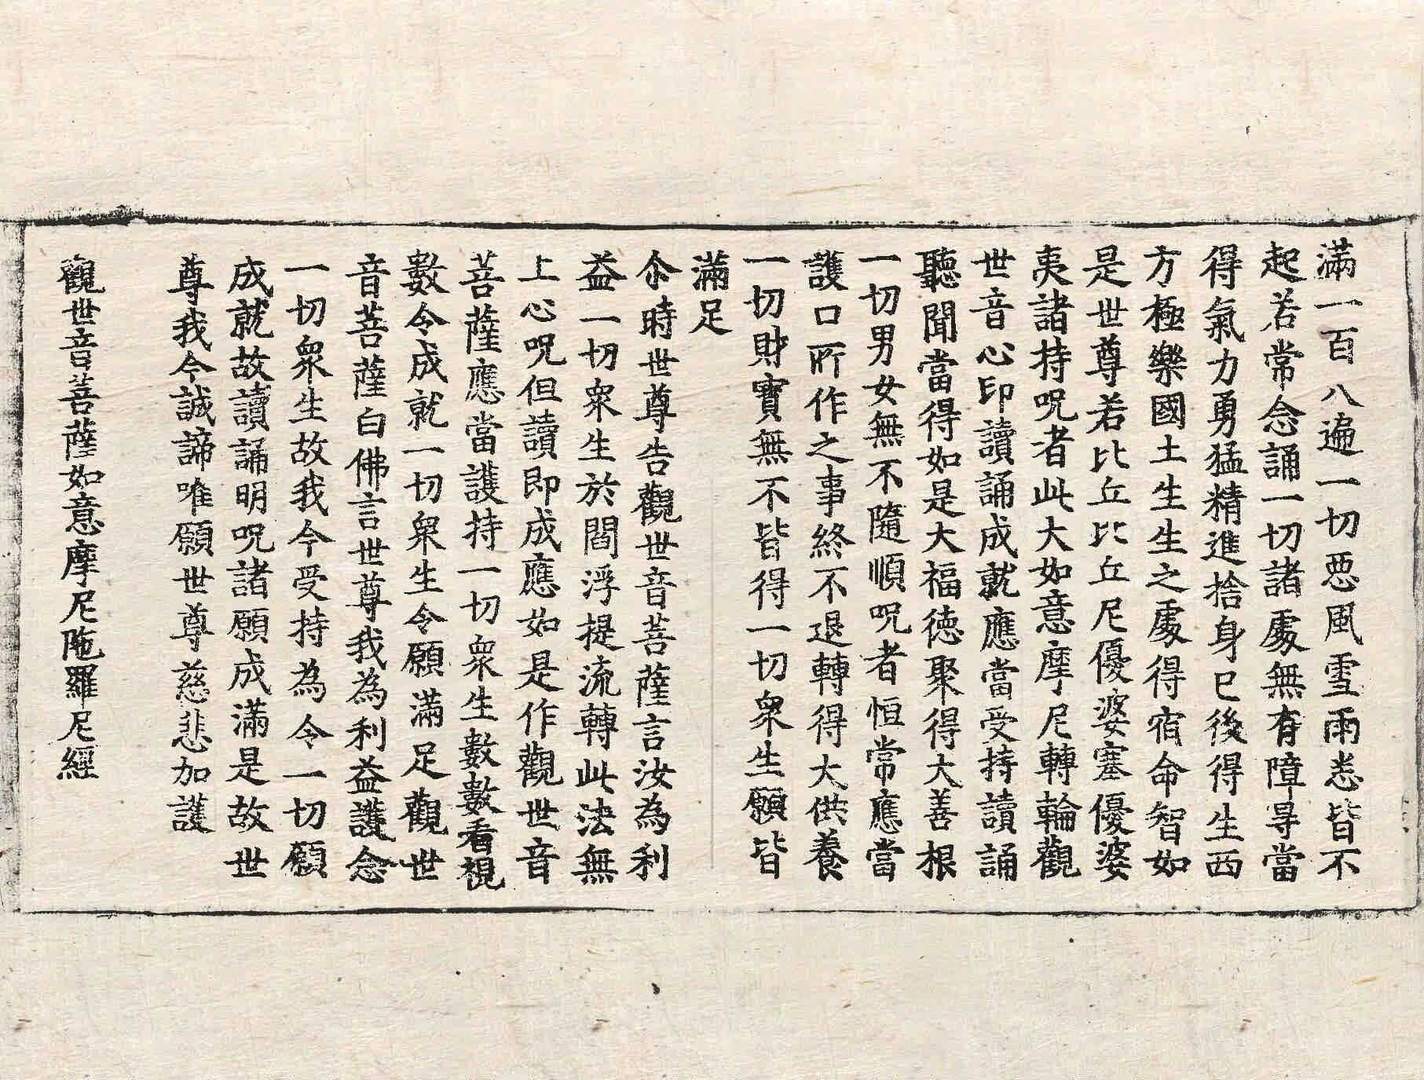 滿一百八遍一切惡風雪雨悉皆不
起若常念誦一切諸處無有障㝵當
得氣力勇猛精進捨身已後得生西
方極樂國土生生之處得宿命智如
是世尊若比丘比丘尼優婆塞優婆
夷諸持呪者此大如意摩尼轉輪觀
世音心印讀誦成就應當受持讀誦
聽聞當得如是大福德聚得大善根
一切男女無不隨順呪者恒常應當
護口所作之事終不退轉得大供養
一切財寶無不皆得一切眾生願皆
滿足
尒時世尊告觀世音菩薩言汝為利
益一切眾生於閻浮提流轉此法無
上心呪但讀即成應如是作觀世音
菩薩應當護持一切眾生數數看視
數令成就一切眾生令願滿足觀世
音菩薩白佛言世尊我為利益護念
一切眾生故我今受持為令一切願
成就故讀誦明呪諸願成滿是故世
尊我今誠諦唯願世尊慈悲加護
觀世音菩薩如意摩尼陁羅尼經